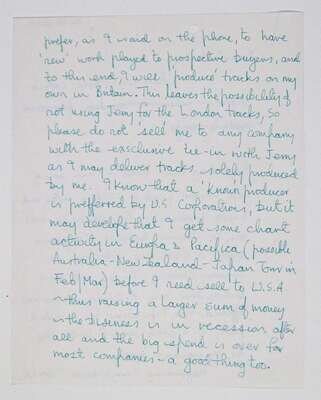 prefer, as I said on the phone, to have
'new' work played to prospective buyers, and
to this end, I will 'produce' tracks on my
own in Britain. This leaves the possibility of
not using Jerry for the London tracks, so
please do not sell me to any company
with the exsclusive tie-in with Jerry
as I may deliver tracks solely produced
by me. I know that a 'known' producer
is preffered by U.S Corporations, but it
may develope that I get some chart
activity in Europa & Pacifica (possible
Australia - New Zealand - Japan Tour in
Feb/Mar) before I need sell to U.S.A
- thus raising a larger sum of money
- the business is in recession after
all and the big spend is over for
most companies - a good thing too.